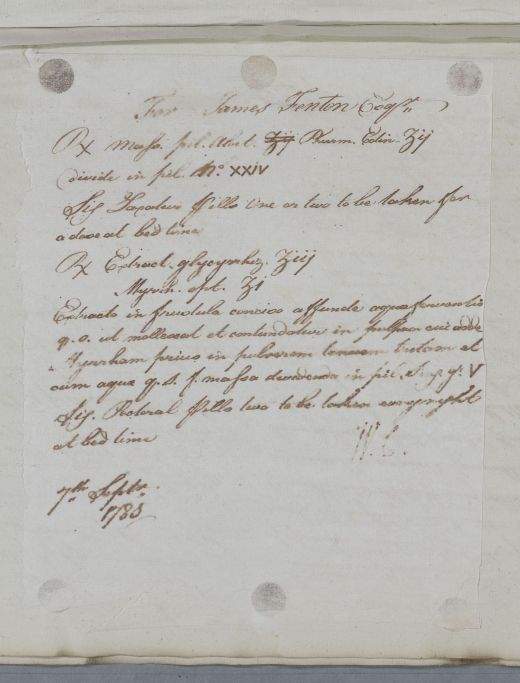 For James Fenton Esqr.
Rx Massa pil. Aloet. Zij Pharm. Edin. Zij
divide in pil. No. XXIV
Sig Laxative Pills One or two to be taken for
a dose at bed time
Rx Extract. glycyrrhiz. Ziij
Myrrh. opt. Zi
Extracto in frustula conciso affunde aquae ferventis
q. s. ut mollescat et contundatur in pulpam cui adde
Myrrham prius in pulverem tenuem tritam et
cum aqua q. s. f. massa dividenda in pil. gr. V
Sig. Pectoral Pills two to be taken every night
at bed time
W. C.
7th Septr.
1783